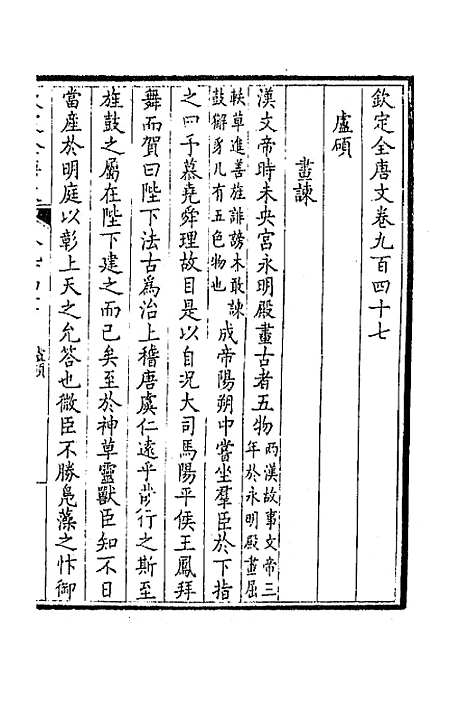 欽定全唐文卷九百四十七
盧碩
畫諫
漢文帝時未央宮永明殿畫古者五物兩漢故事文帝三年於永明殿畫屈
軼草進善旌誹謗木敢諫鼓獬豸凡有五色物也成帝陽朔中嘗坐羣臣於下指
之曰予慕堯舜理故目是以自況大司馬陽平侯王鳳拜
舞而賀曰陛下法古爲治上稽唐虞仁遠乎哉行之斯至
旌鼓之屬在陛下建之而已矣至於神草靈獸臣知不日
當產於明庭以彰上天之允答也微臣不勝鳧藻之忭御
盧碩